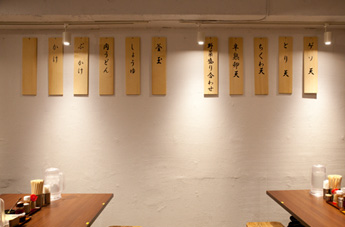 ゲソ天
とり天
ちくわ天
半熟卵天
野菜盛り合わせ
釜玉
しょうゆ
肉うどん
ぶっかけ
かけ